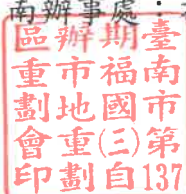 南辦事處：
臺南市第137
期福國(三)自
辦市地重劃
區重劃會印